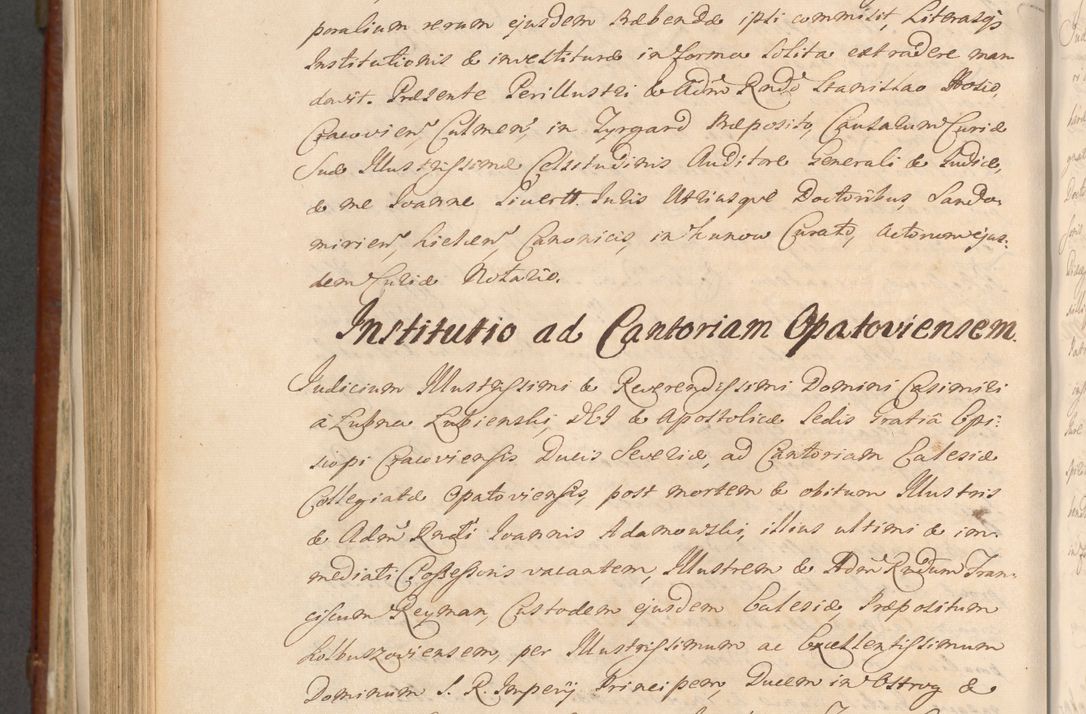 poralium rerum ejusdem Præbendæ ipsi commisit, Literasq́;
Institutionis & investituræ in forma solita extradere man
davit. Præsente Perillustri & Adm̃ Rndõ Stanislao Hosio,
Cracovien̄, Culmen̄, in Tyrgard Præposito, Causarum Curiæ
Suæ Illustrissimæ Celsitudinis Auditore Generali & Judice,
& me Joanne Siuertt Juris Utriusque Doctoribus, Sando-
mirien̄, Kielcen̄, Canonicis, in Kunow Curato, Actorum ejus-
dem Curiæ Notario.
Institutio ad Cantoriam Opatoviensem.
Judicium Illustrissimi & Reverendissimi Domini Casimiri
à Łubna Łubienski, DEI & Apostolicæ Sedis Gratiâ Epi-
scopi Cracoviensis Ducis Severiæ, ad Cantoriam Ecclesiæ
Collegiatæ Opatoviensis, post mortem & obitum Illustris
& Adm̃ Rndi Joannis Adamowski, illius ultimi & im-
mediati Possessoris vacantem, Illustrem & Adm̃ Rndum Fran-
ciscum Reyman, Custodem ejusdem Ecclesiæ, Præpositum
Kolbuszoviensem, per Illustrissimum ac Excellentissimum
Dominum S. R. Imperÿ Principem, Ducem in Ostrog &